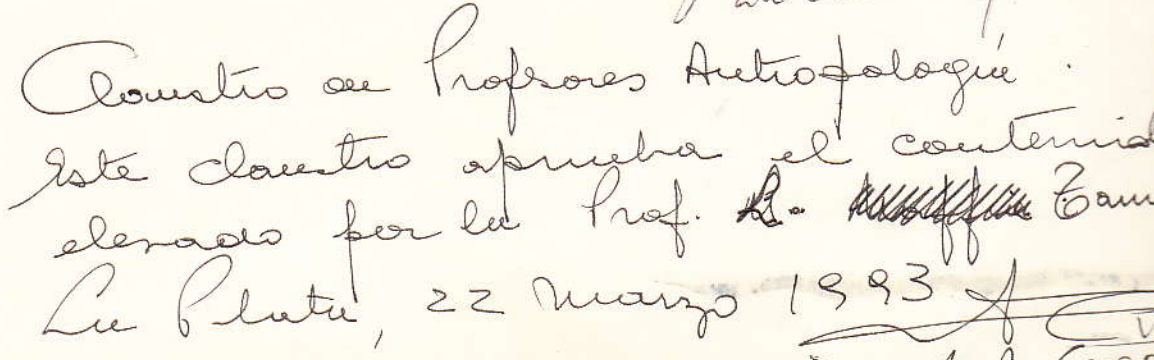 Claustro de Profesores Antropología.
Este claustro aprueba el contenid
elevado por la Prof. R. Zam
La Plata, 22 Marzo 1993